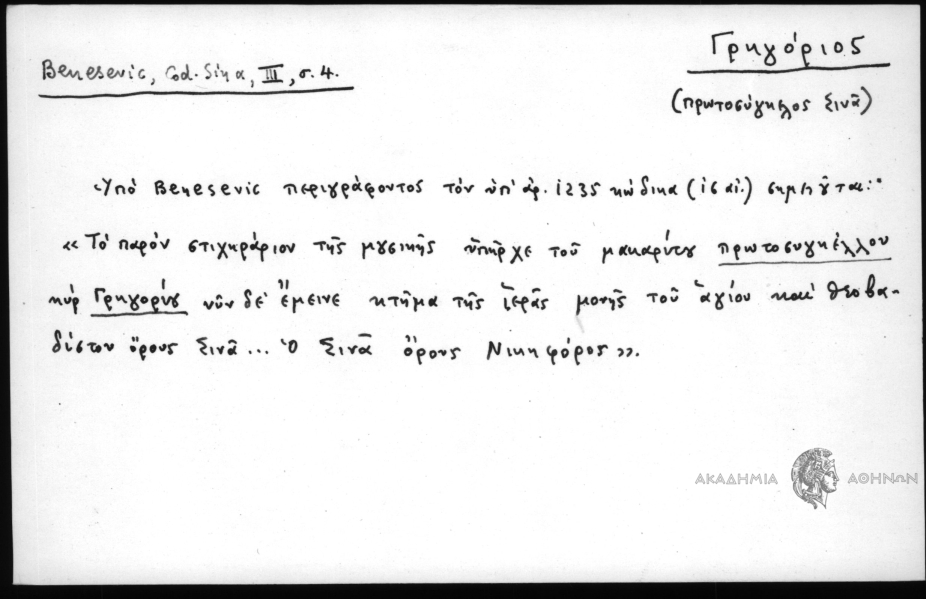 Γρηγόριος
Benesevic, Cod. Sina, III, σ. 4.
(πρωτοσύγκελος Σινᾶ)
Ὑπὸ Benesevic περιγράφοντος τὸν ὑπ' ἀρ. 1235 κώδικα (ις αἰ.) σημειοῦται:
«Τὸ παρὸν στιχηράριον τῆς μουσικῆς ὑπῆρχε τοῦ μακαρίτου πρωτοσυγκέλλου
κὺρ Γρηγορίου νῦν δὲ ἔμεινε κτῆμα τῆς ἱερᾶς μονῆς τοῦ ἁγίου καὶ θεοβα-
δίστου ὄρους Σινᾶ ... Ὁ Σινᾶ ὄρους Νικηφόρος».
ΑΚΑΔΗΜΙΑ ΑΘΗΝΩΝ